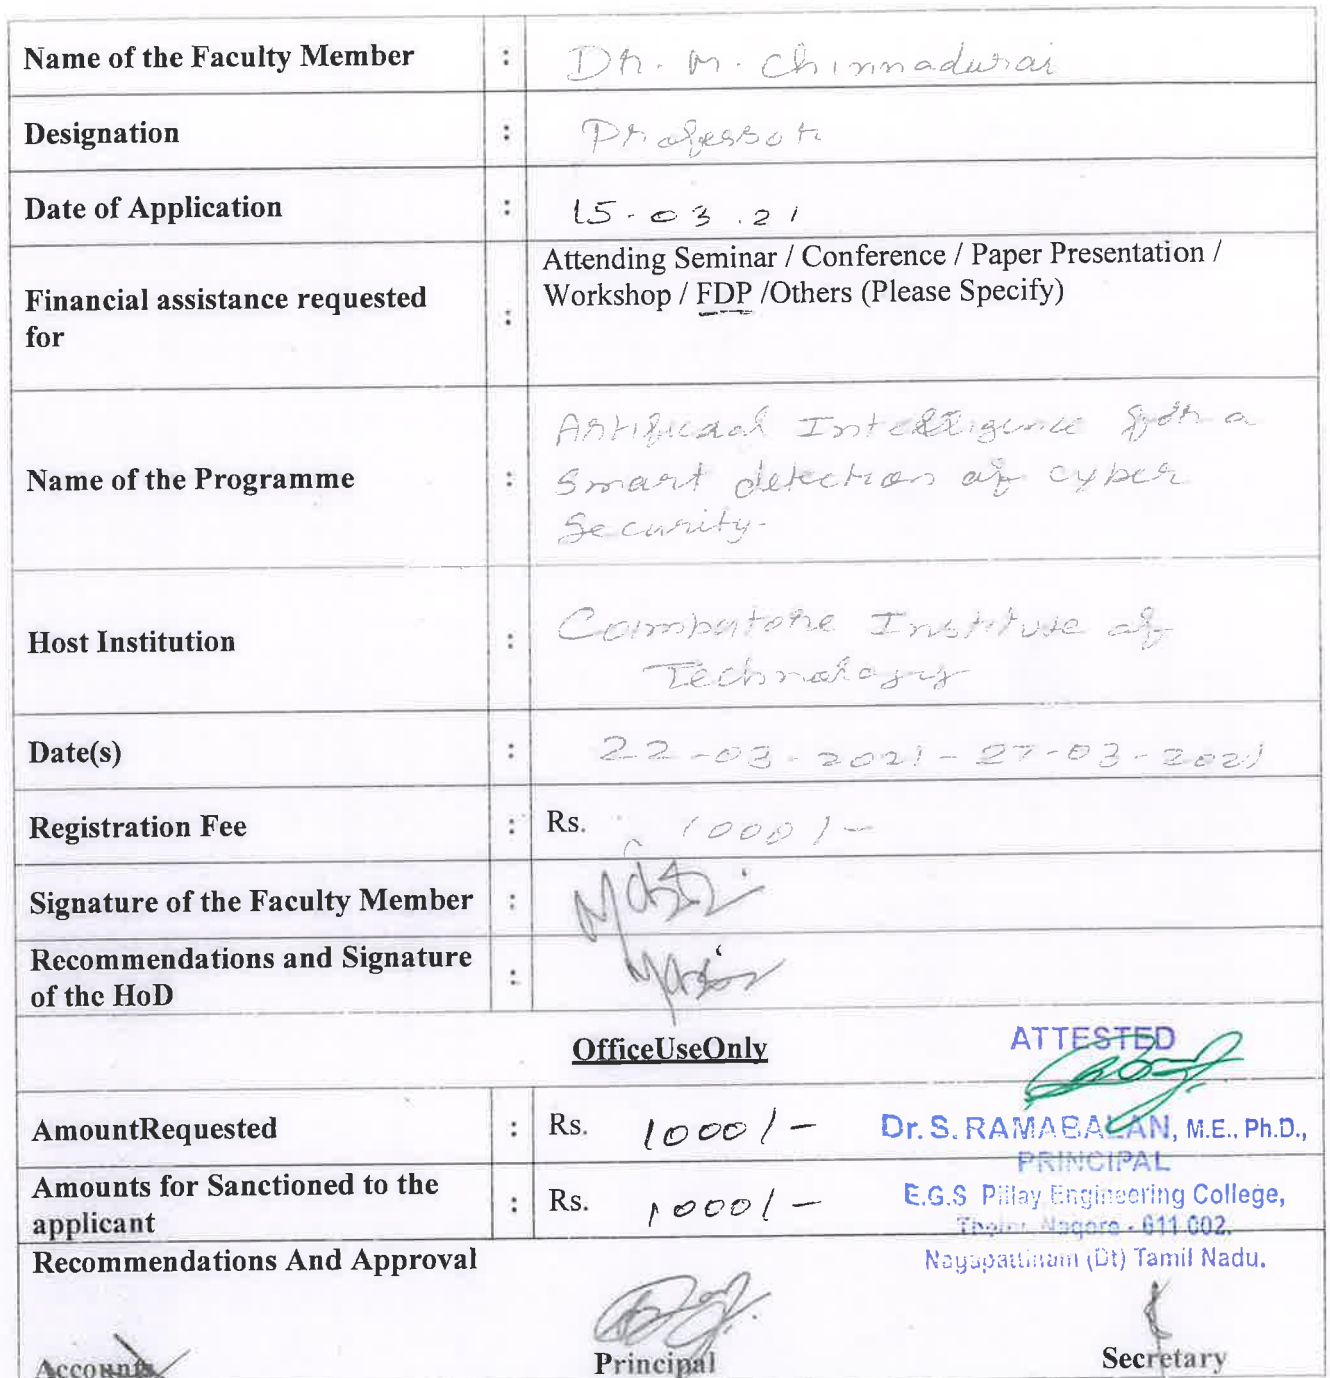 Name of the Faculty Member : Dr. M. Chinnadurai
Designation : Professor
Date of Application : 15.03.21
Financial assistance requested
for :
Attending Seminar / Conference / Paper Presentation /
Workshop / FDP /Others (Please Specify)
Name of the Programme :
Artificial Intelligence for a
Smart detection of cyber
Security.
Host Institution :
Coimbatore Institute of
Technology
Date(s) : 22-03-2021 - 27-03-2021
Registration Fee : Rs. 1000/-
Signature of the Faculty Member :
Recommendations and Signature
of the HoD :
OfficeUseOnly
ATTESTED
AmountRequested : Rs. 1000/-
Dr. S. RAMABALAN, M.E., Ph.D.,
PRINCIPAL
Amounts for Sanctioned to the
applicant : Rs. 1000/-
E.G.S Pillay Engineering College,
Nagore - 611 002.
Nagapattinam (Dt) Tamil Nadu.
Recommendations And Approval
Accounts Principal Secretary